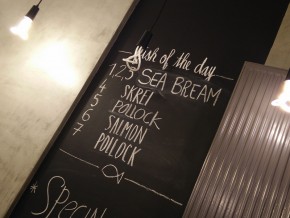 Fish of the day
1,2,3 SEA BREAM
4 SKREI
5 POLLOCK
6 SALMON
7 POLLOCK
* SPECIAL